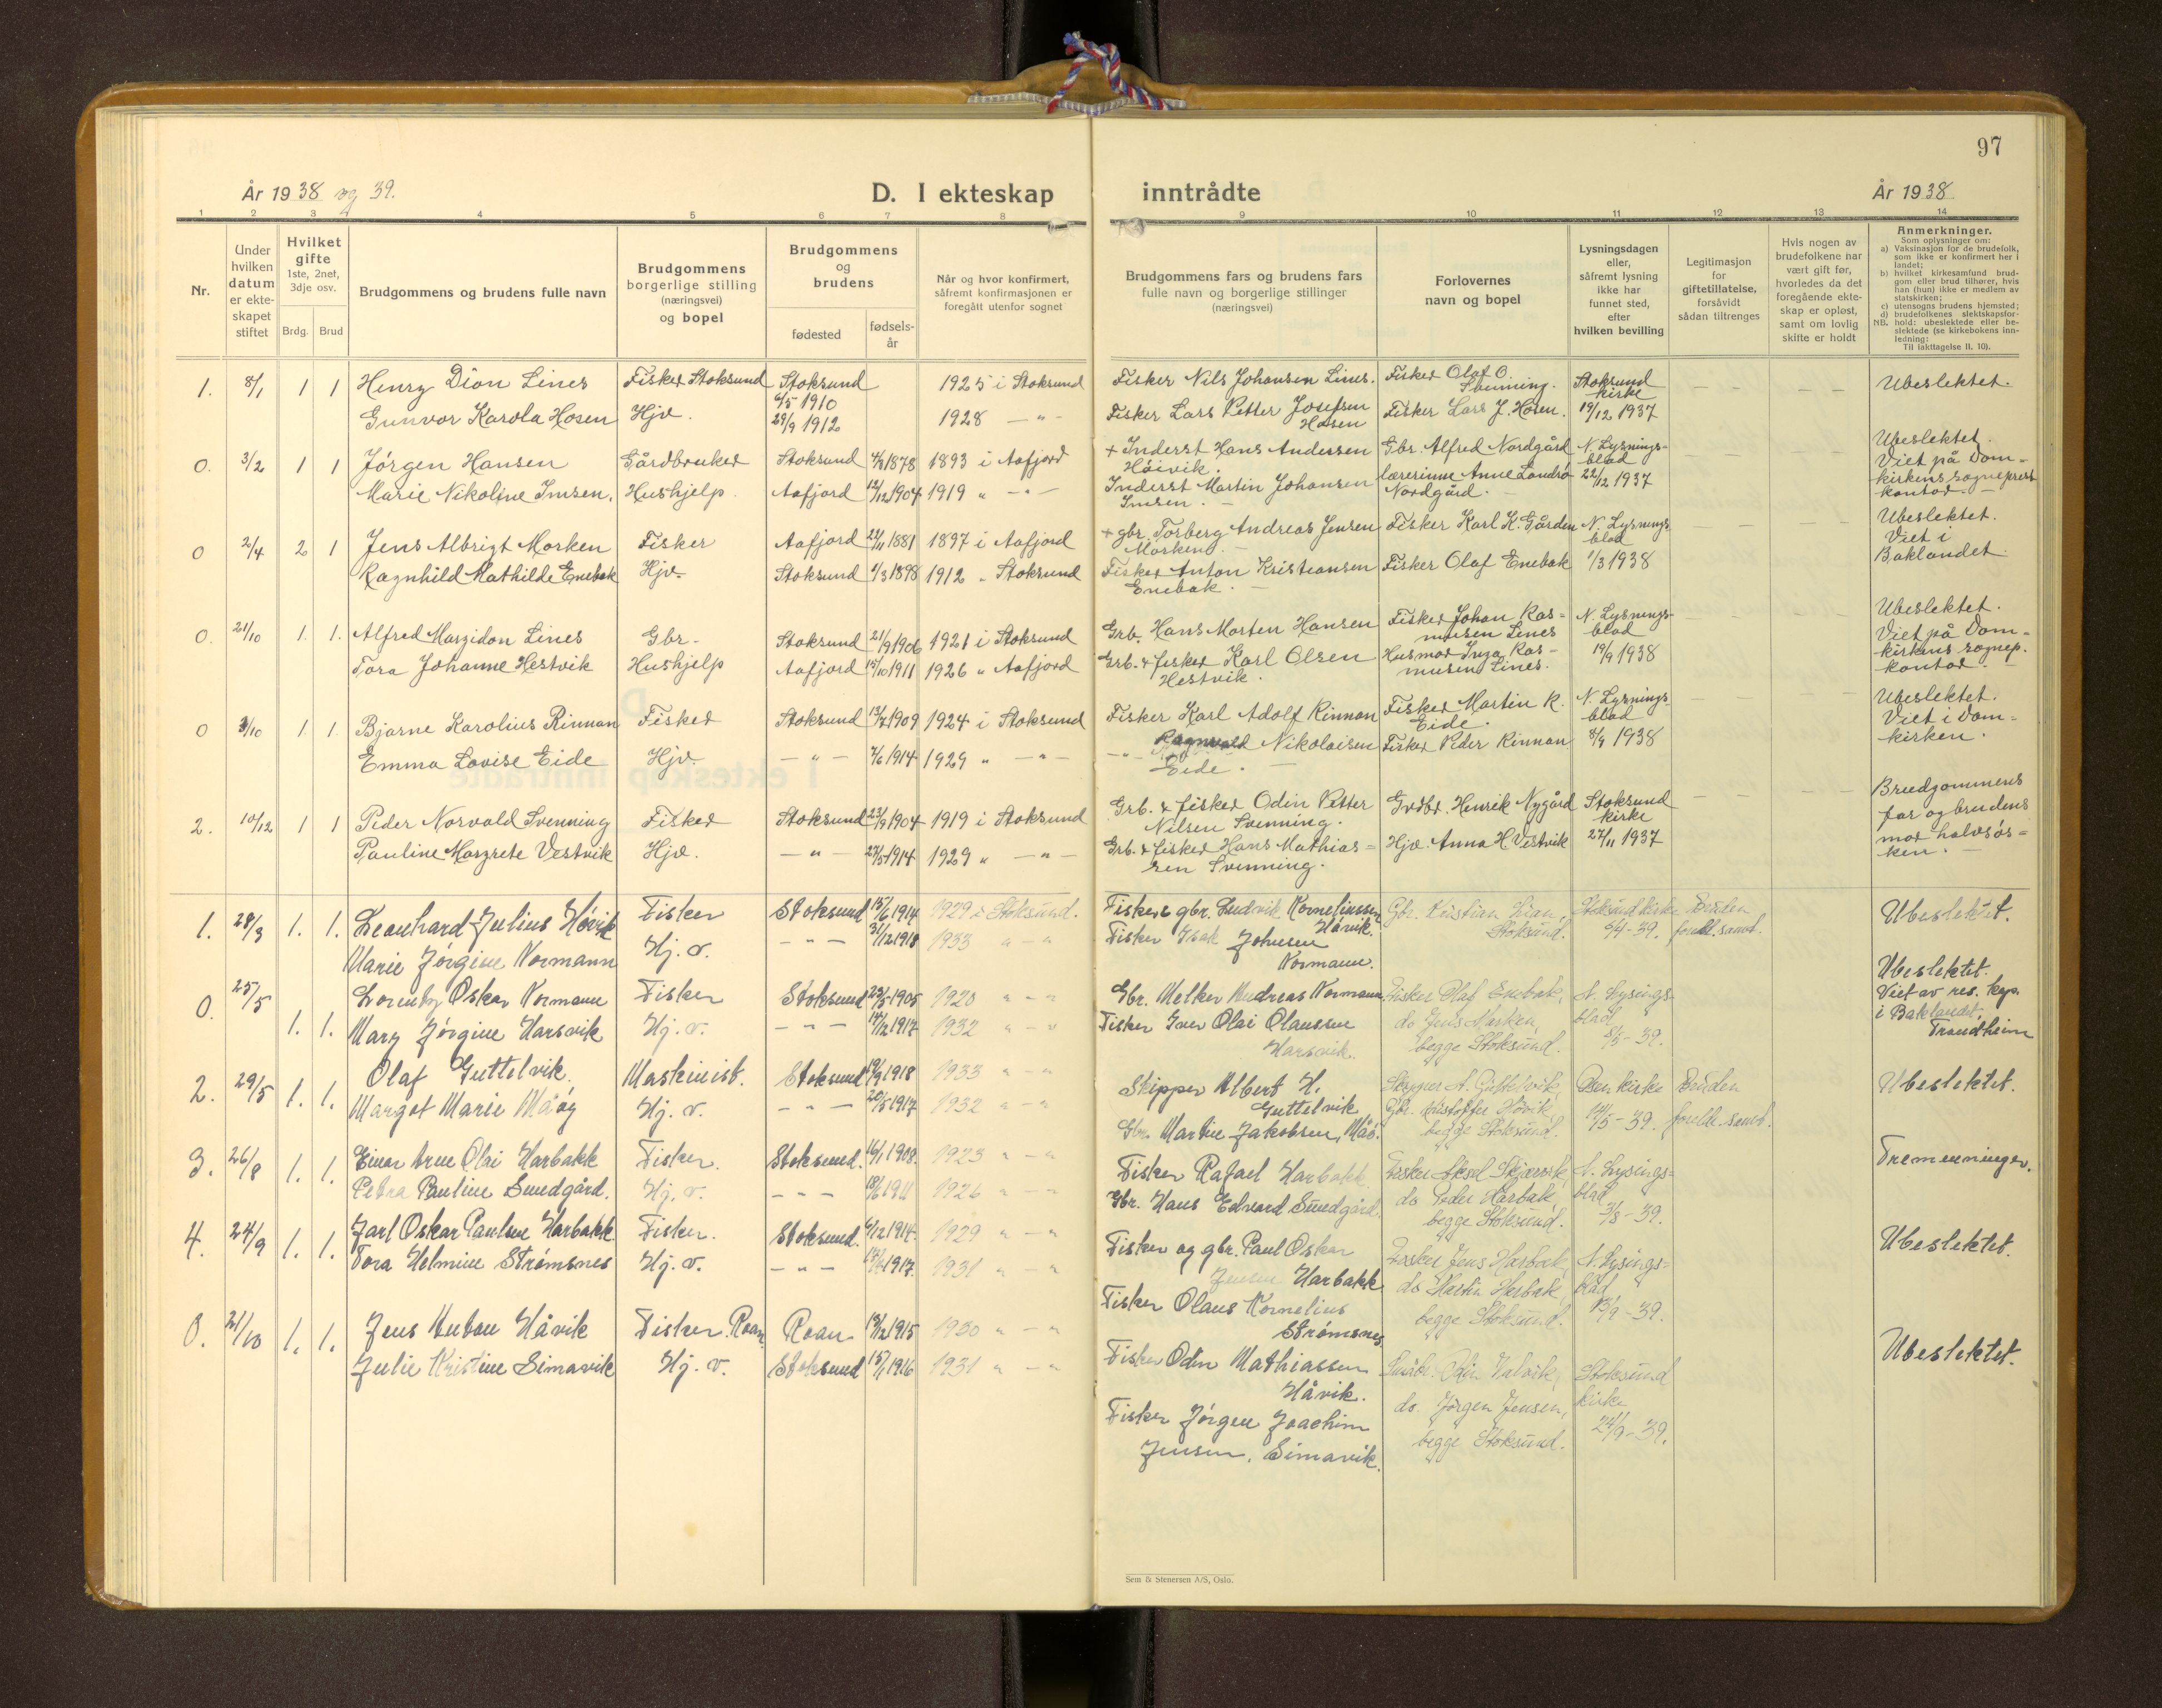 97
År 1938 og 39.
D. I ekteskap inntrådte
År 1938
1 2 3 4 5 6 7 8 9 10 11 12 13 14
Nr.
Under hvilken datum er ekteskapet stiftet
Hvilket gifte 1ste, 2net, 3dje osv.
Brdg. Brud
Brudgommens og brudens fulle navn
Brudgommens borgerlige stilling (næringsvei) og bopel
Brudgommens og brudens
fødested
fødselsår
Når og hvor konfirmert, såfremt konfirmasjonen er foregått utenfor sognet
Brudgommens fars og brudens fars fulle navn og borgerlige stillinger (næringsvei)
Forlovernes navn og bopel
Lysningsdagen eller, såfremt lysning ikke har funnet sted, efter hvilken bevilling
Legitimasjon for giftetillatelse, forsåvidt sådan tiltrenges
Hvis nogen av brudefolkene har vært gift før, hvorledes da det foregående ekteskap er opløst, samt om lovlig skifte er holdt
Anmerkninger.
Som oplysninger om:
a) Vaksinasjon for de brudefolk, som ikke er konfirmert her i landet;
b) hvilket kirkesamfund brudgom eller brud tilhører, hvis han (hun) ikke er medlem av statskirken;
c) utensogns brudens hjemsted;
d) brudefolkenes slektskapsforhold: ubeslektede eller beslektede (se kirkebokens innledning:
NB. Til iakttagelse II. 10).
1. 8/1 1 1 Henry Dion Lines Fisker Stoksund Stoksund 6/5 1910 1925 i Stoksund Fisker Nils Johansen Lines. Fisker Olaf O. Svenning. Stoksund kirke — — Ubeslektet.
Gunvor Karola Hosen Hjv. 29/9 1912 1928 — " — Fisker Lars Petter Josefsen Hosen Fisker Lars J. Hosen. 19/12 1937
0. 3/2 1 1 Jørgen Hansen Gårdbruker Stoksund 1878 1893 i Aafjord + Inderst Hans Andersen Håivik. Gbr. Alfred Nordgård N. Lysningsblad Ubeslektet. Viet på Domkirkens sogneprest kontor. —
Marie Nikoline Imsen. Hushjelp. Aafjord 12/12 1904 1919 " — " — Inderst Martin Johansen Imsen. — lærerinne Anne Landrø Nordgård. 22/12 1937
0 2/4 2 1 Jens Albrigt Morken Fisker Aafjord 22/11 1881 1897 i Aafjord + gbr. Torberg Andreas Jensen Morken. — Fisker Karl K. Gården N. Lysningsblad Ubeslektet. Viet i Baklandet.
Ragnhild Mathilde Enebak Hjv. Stoksund 1/3 1898 1912 " Stoksund Fisker Anton Kristiansen Enebak. — Fisker Olaf Enebak 1/3 1938
0. 21/10 1. 1. Alfred Margidon Lines Gbr. Stoksund 21/9 1906 1921 i Stoksund Grb. Hans Morten Hansen Fisker Johan Rasmusen Lines N. Lysningsblad Ubeslektet. Viet på Domkirkens sognep. kontor. —
Tora Johanne Hestvik Hushjelp Aafjord 15/10 1911 1926 " Aafjord Grb. & fisker Karl Olsen Hestvik. Husmor Inga Rasmusen Lines. 19/9 1938
0 3/10 1. 1. Bjarne Karolius Rinnan Fisker Stoksund 13/7 1909 1924 i Stoksund Fisker Karl Adolf Rinnan Fisker Martin R. Eide. N. Lysningsblad Ubeslektet. Viet i Domkirken.
Emma Lovise Eide Hjv. — " — 7/6 1914 1929 " — " — — " — Ragnvald Nikolaisen Eide. — Fisker Peder Rinnan 8/9 1938
2. 10/12 1 1 Peder Norvald Svenning Fisker Stoksund 23/9 1904 1919 i Stoksund Grb. & fisker Odin Petter Nilsen Svenning. Grdbr. Henrik Nygård Stoksund kirke Brudgommens far og brudens mor halvsøsken. —
Pauline Margrete Vestvik Hjv. — " — 27/5 1914 1929 " — " — Grb. & fisker Hans Mathiassen Svenning. Hjv. Anna H. Vestvik 27/11 1937
1. 28/3 1. 1. Leonhard Julius Håvik Fisker Stoksund 15/6 1914 1929 i Stoksund. Fisker & gbr. Ludvik Korneliussen Håvik. Gbr. Kristian Lian, Stoksund. Stoksund kirke 9/4-39. Bruden foreld. samt. Ubeslektet.
Marie Jørgine Normann Hj. v. — " — 31/12 1918 1933 " — " Fisker Isak Johnsen Normann.
0. 25/5 1. 1. Lorents Oskar Normann Fisker Stoksund 25/5 1905 1920 " — " Gbr. Melker Andreas Normann Fisker Olaf Enebak, N. Lysingsblad Ubeslektet. Viet av res. kap. i Baklandet, Trondheim
Mary Jørgine Harsvik Hj. v. — " — 14/2 1917 1932 " — " Fisker Iver Olai Olaussen Harsvik. do Jens Morken, begge Stoksund. 8/5-39.
2. 29/5 1. 1. Olaf Guttelvik Maskinist. Stoksund 19/9 1918 1933 " — " Skipper Albert H. Guttelvik Skipper A. Guttelvik, Osen kirke Bruden Ubeslektet.
Margot Marie Måøy Hj. v. — " — 20/5 1917 1932 " — " Gbr. Martin Jakobsen, Måø. Gbr. Kristoffer Håvik, begge Stoksund. 14/5-39. forelde. samt.
3. 26/8 1. 1. Einar Arne Olai Harbakk Fisker. Stoksund. 16/1 1908. 1923 " — " Fisker Rafael Harbakk. Fisker Aksel Skjærvik, N. Lysingsblad Tremenninger.
Petra Pauline Sundgård. Hj. v. — — — 18/6 1911 1926 " — " Gbr. Hans Edvard Sundgård. do Peder Harbak, begge Stoksund. 3/8-39.
4. 24/9 1. 1. Jarl Oskar Paulsen Harbakk Fisker. Stoksund. 6/12 1914. 1929 " — " Fisker og gbr. Paul Oskar Jensen Harbakk Fisker Jens Harbak, N. Lysingsblad Ubeslektet.
Tora Helmine Strømsnes Hj. v. — " — 1917. 1931 " — " Fisker Olaus Kornelius Strømsnes do Martin Harbak, begge Stoksund. 13/9-39.
0. 21/10 1. 1. Jens Anton Håvik Fisker. Roan Roan 13/2 1915 1930 " — " Fisker Odin Mathiassen Håvik. Småbr. Odin Valvik, Stoksund kirke Ubeslektet.
Julie Kristine Simavik Hj. v. Stoksund 15/1 1916 1931 " — " Fisker Jørgen Joachim Jensen, Simavik. do. Jørgen Jensen, begge Stoksund. 24/9-39.
Sem & Stenersen A/S, Oslo.